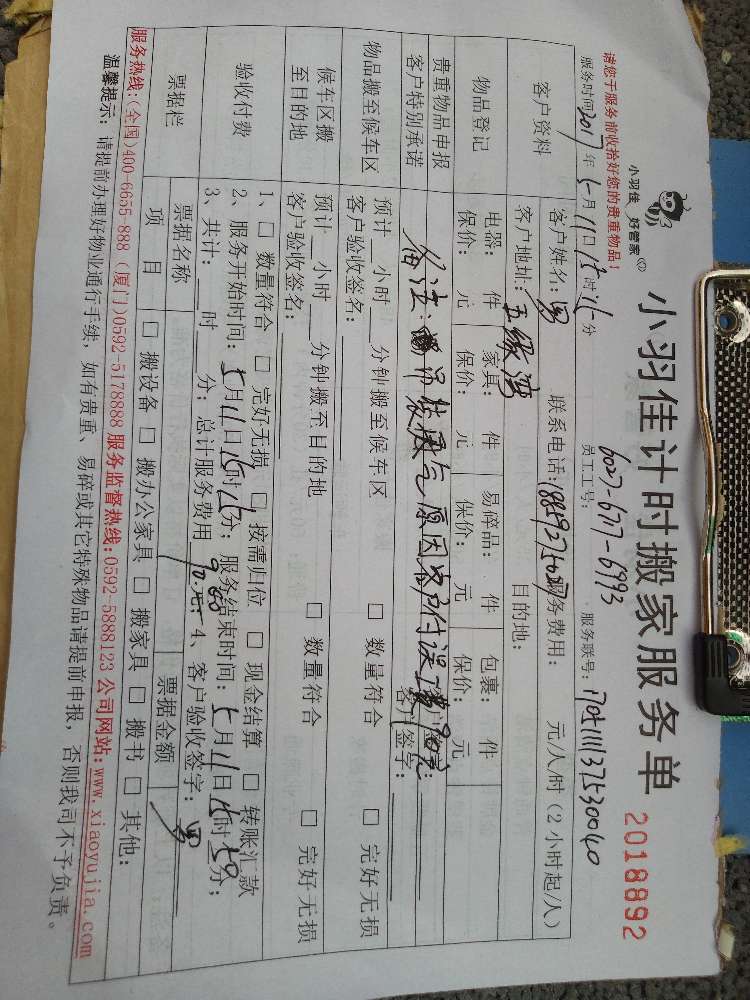 小羽佳 好管家
小羽佳计时搬家服务单
2018892
请您于服务前收拾好您的贵重物品！
员工工号：6027-677-6993
服务联号：
服务时间2017年5月11日15时 分
客户资料
客户姓名： 联系电话： 服务费用： 元/人/时（2小时起/人）
客户地址：五缘湾 目的地：
物品登记
电器： 件 家具： 件 易碎品： 件 包裹： 件
保价： 元 保价： 元 保价： 元 保价： 元
贵重物品申报
客户特别承诺
备法： 吊装 原因客户付误工费90元
客户签字：
物品搬至候车区
预计 小时 分钟搬至候车区 □ 数量符合 □ 完好无损
客户验收签名：
候车区搬至目的地
预计 小时 分钟搬至目的地 □ 数量符合 □ 完好无损
客户验收签名：
验收付费
1、□ 数量符合 □ 完好无损 □ 按需归位 □ 现金结算 □ 转账汇款
2、服务开始时间：5月11日15时 分；服务结束时间：5月11日15时50分；
3、共计： 时 分；总计服务费用 90 元；4、客户验收签字：
票据栏
票据名称 票据金额
项 目 □ 搬设备 □ 搬办公家具 □ 搬家具 □ 搬书 □ 其他：
服务热线：(全国)400-6655-888 (厦门)0592-5178888 服务监督热线：0592-5888123 公司网站：www.xiaoyujia.com
温馨提示：请提前办理好物业通行手续，如有贵重、易碎或其它特殊物品请提前申报，否则我司不予负责。